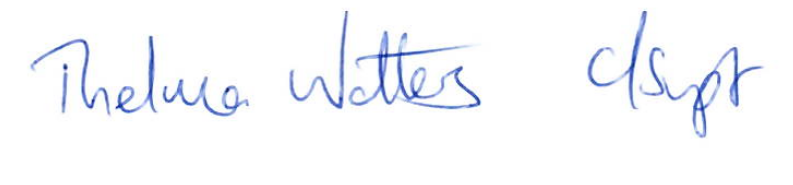 Thelma Watters C/Supt